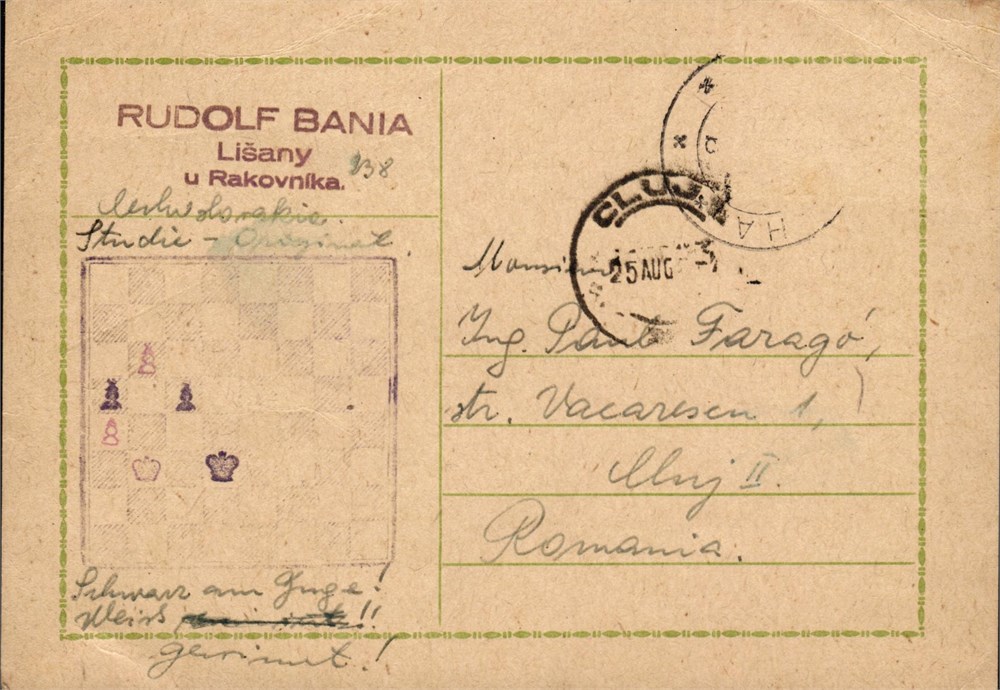 RUDOLF BANIA
Lišany
u Rakovníka.
Studie - Original
Schwarz am Zuge!
Weiss !!
gewinnt!
CLUJ
25 AUG
HA
Monsieur
Ing. Paul Faragó,
str. Vacarescu 1,
Cluj II.
Romania.